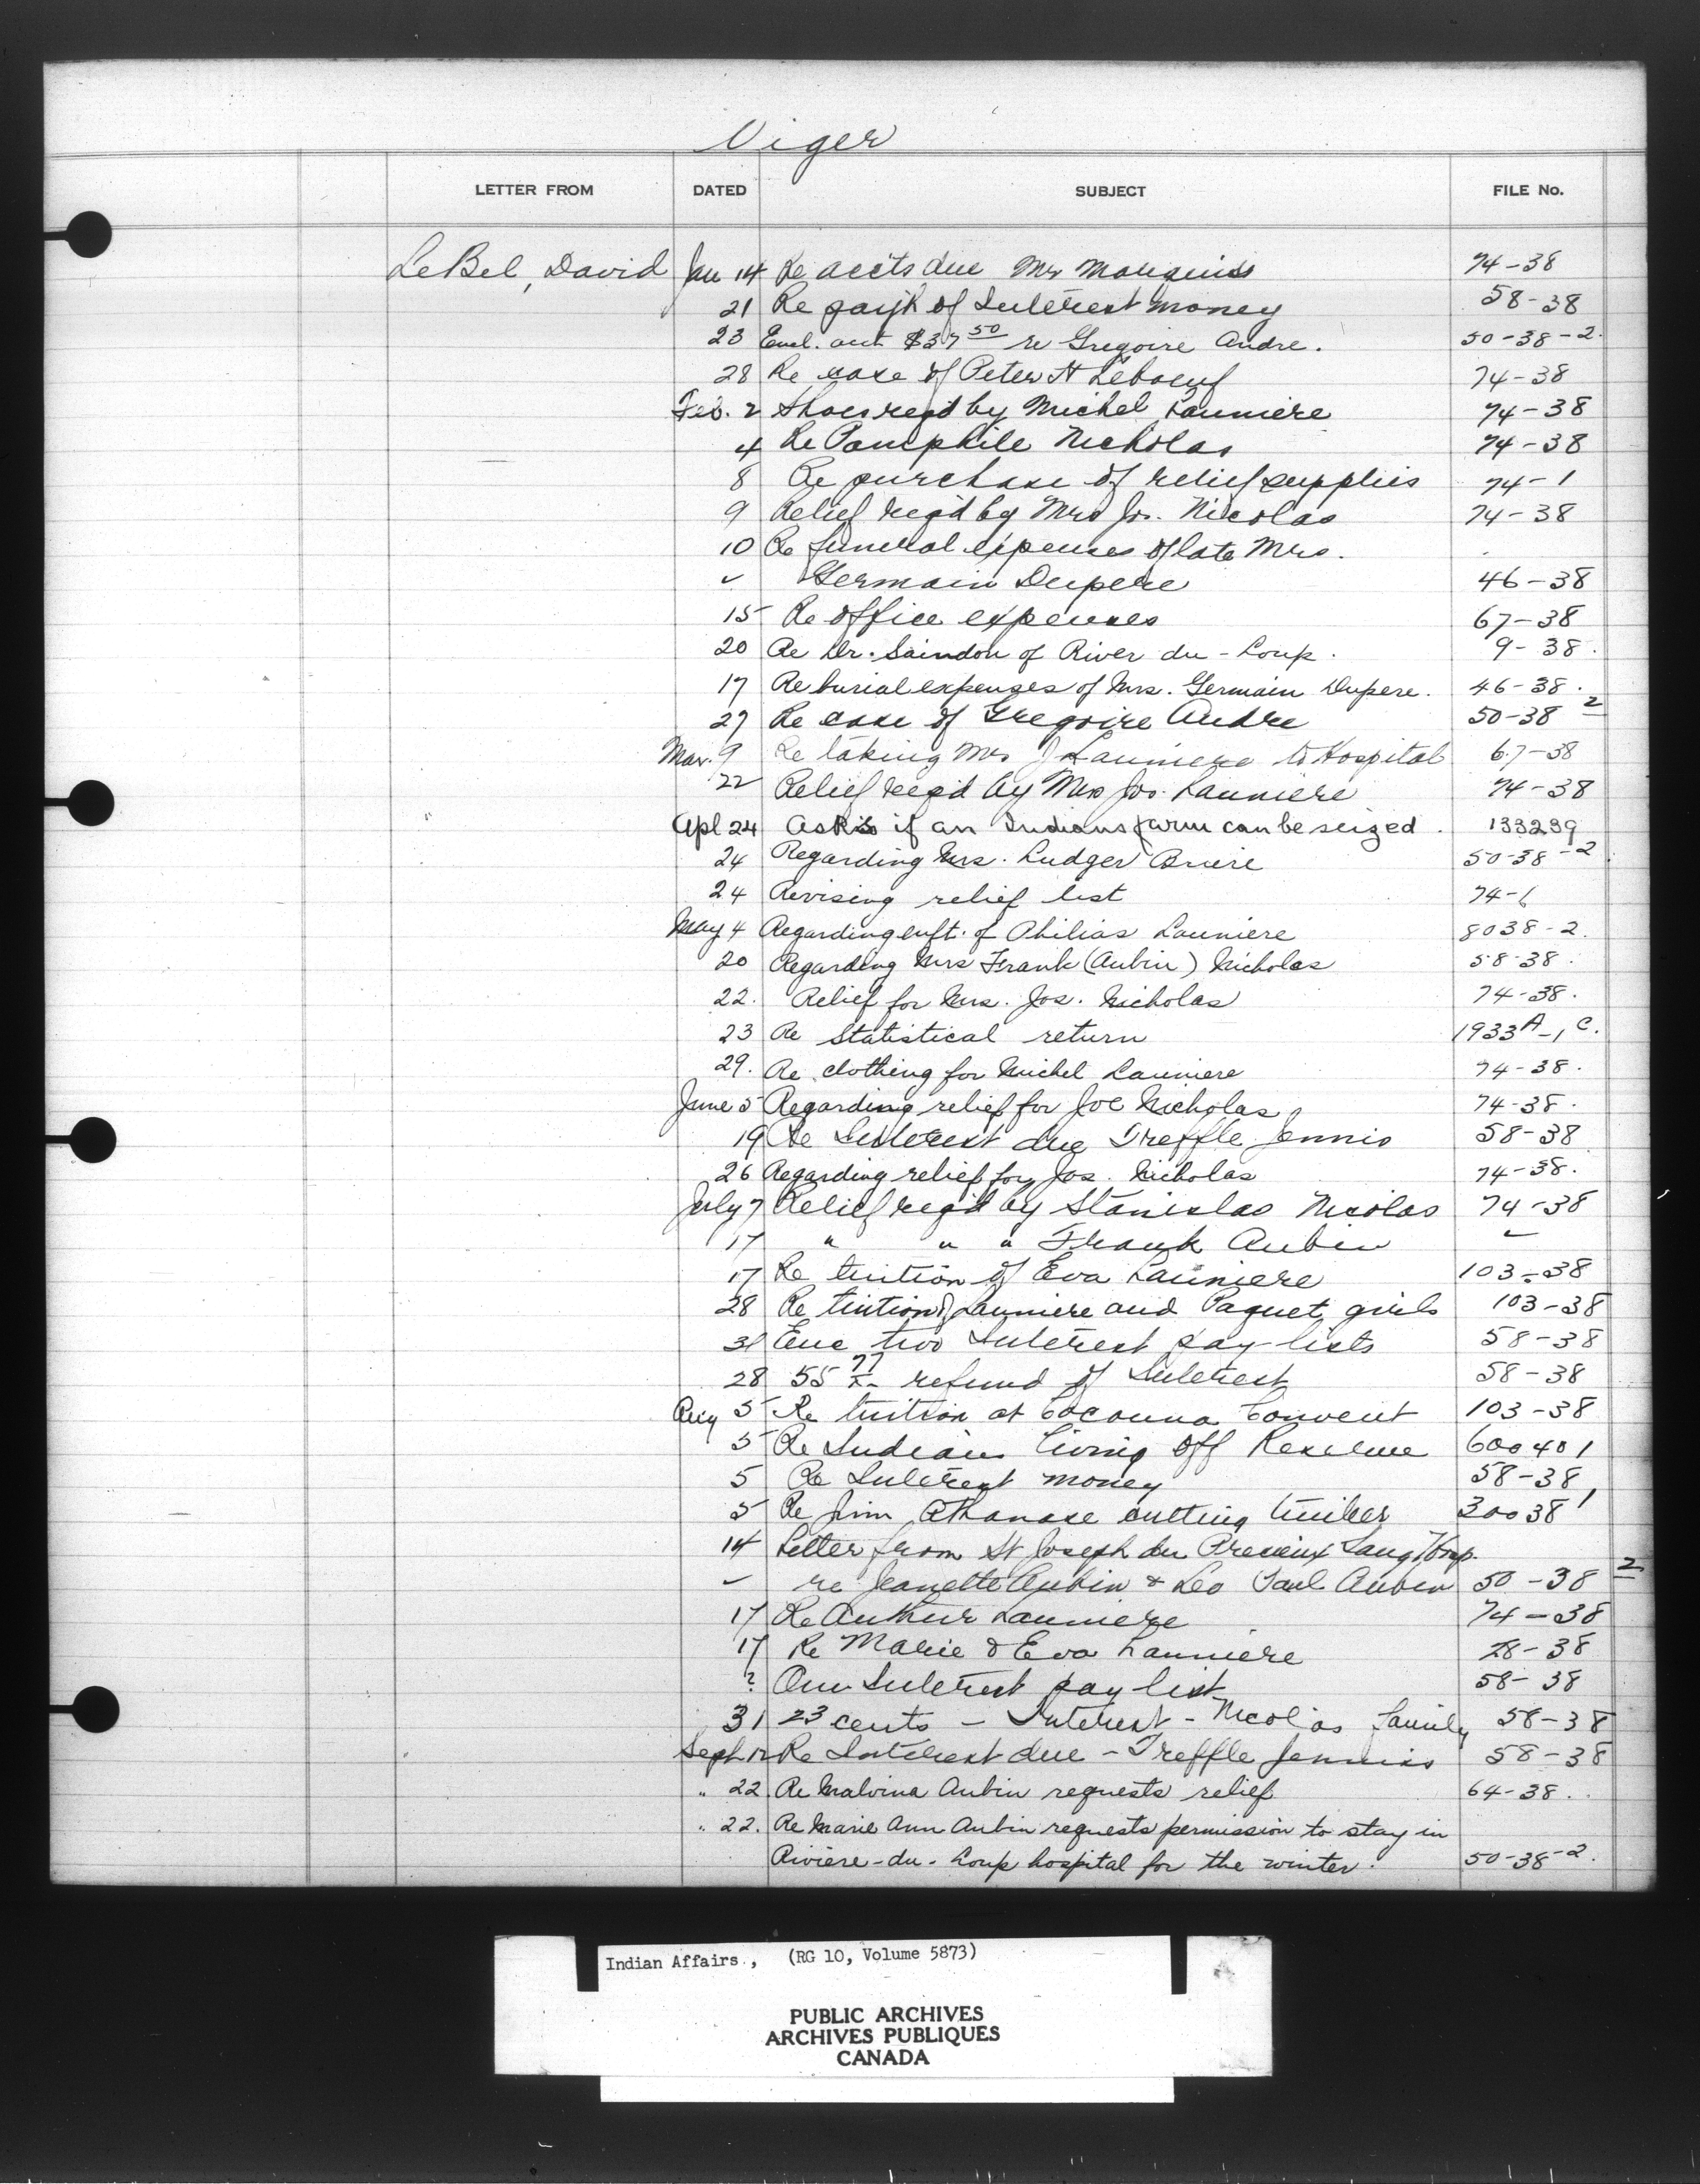 Viger
LETTER FROM DATED SUBJECT FILE No.
LeBel, David Jan 14 Re accts due Mr Marquis 74-38
21 Re paym't of Interest money 58-38
23 Encl. acct $37 50 re Gregoire Andre. 50-38-2.
28 Re case of Peter A Leboeuf 74-38
Feb. 2 Shoes reqd by Michel Launiere 74-38
4 Re Pamphile Nicholas 74-38
8 Re purchase of relief supplies 74-1
9 Relief req'd by Mrs Jos. Nicolas 74-38
10 Re funeral expenses of late Mrs.
" Germain Dupere 46-38
15 Re office expenses 67-38
20 Re Dr. Saindon of River du-Loup. 9-38.
17 Re burial expenses of Mrs. Germain Dupere. 46-38.
27 Re case of Gregoire Andre 50-38 2
Mar. 9 Re taking Mrs J Launiere to Hospital 67-38
22 Relief req'd by Mrs Jos. Launiere 74-38
Apl 24 Asks if an Indians farm can be seized. 133239
24 Regarding Mrs. Ludger Briere 50-38-2.
24 Revising relief list 74-1
May 4 Regarding enft. of Philias Launiere 8038-2.
20 Regarding Mrs Frank (Aubin) Nicholas 58-38.
22. Relief for Mrs. Jos. Nicholas 74-38.
23 Re Statistical return 1933A-1C.
29. Re clothing for Michel Launiere 74-38.
June 5 Regarding relief for Joe Nicholas 74-38.
19 Re Interest due Treffle Jennis 58-38
26 Regarding relief for Jos. Nicholas 74-38.
July 7 Relief req'd by Stanislas Nicolas 74-38
17 " " " Frank Aubin "
17 Re tuition of Eva Launiere 103-38
28 Re tuition of Launiere and Paquet girls 103-38
31 Enc two Interest pay-lists 58-38
28 55 77 refund of Interest 58-38
Aug 5 Re tuition at Cacouna Convent 103-38
5 Re Indians living off Reserve 600401
5 Re Interest money 58-38
5 Re Jim Athanase cutting timber 30038 1
14 Letter from St Joseph du Precieux Sang Hosp.
" re Jeanette Aubin & Leo Paul Aubin 50-38 2
17 Re Arthur Launiere 74-38
17 Re Marie & Eva Launiere 28-38
? One Interest pay list 58-38
31 23 cents - Interest - Nicolas family 58-38
Sept 12 Re Interest due - Treffle Jennis 58-38
" 22. Re Malvina Aubin requests relief 64-38.
" 22. Re Marie Ann Aubin requests permission to stay in
Riviere-du-Loup hospital for the winter. 50-38-2.
Indian Affairs, (RG 10, Volume 5873)
PUBLIC ARCHIVES
ARCHIVES PUBLIQUES
CANADA